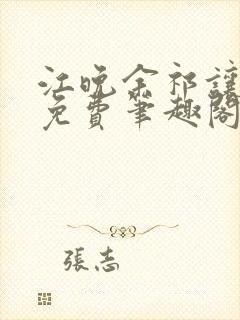 江晚余祁讓
免費筆趣閣
張志